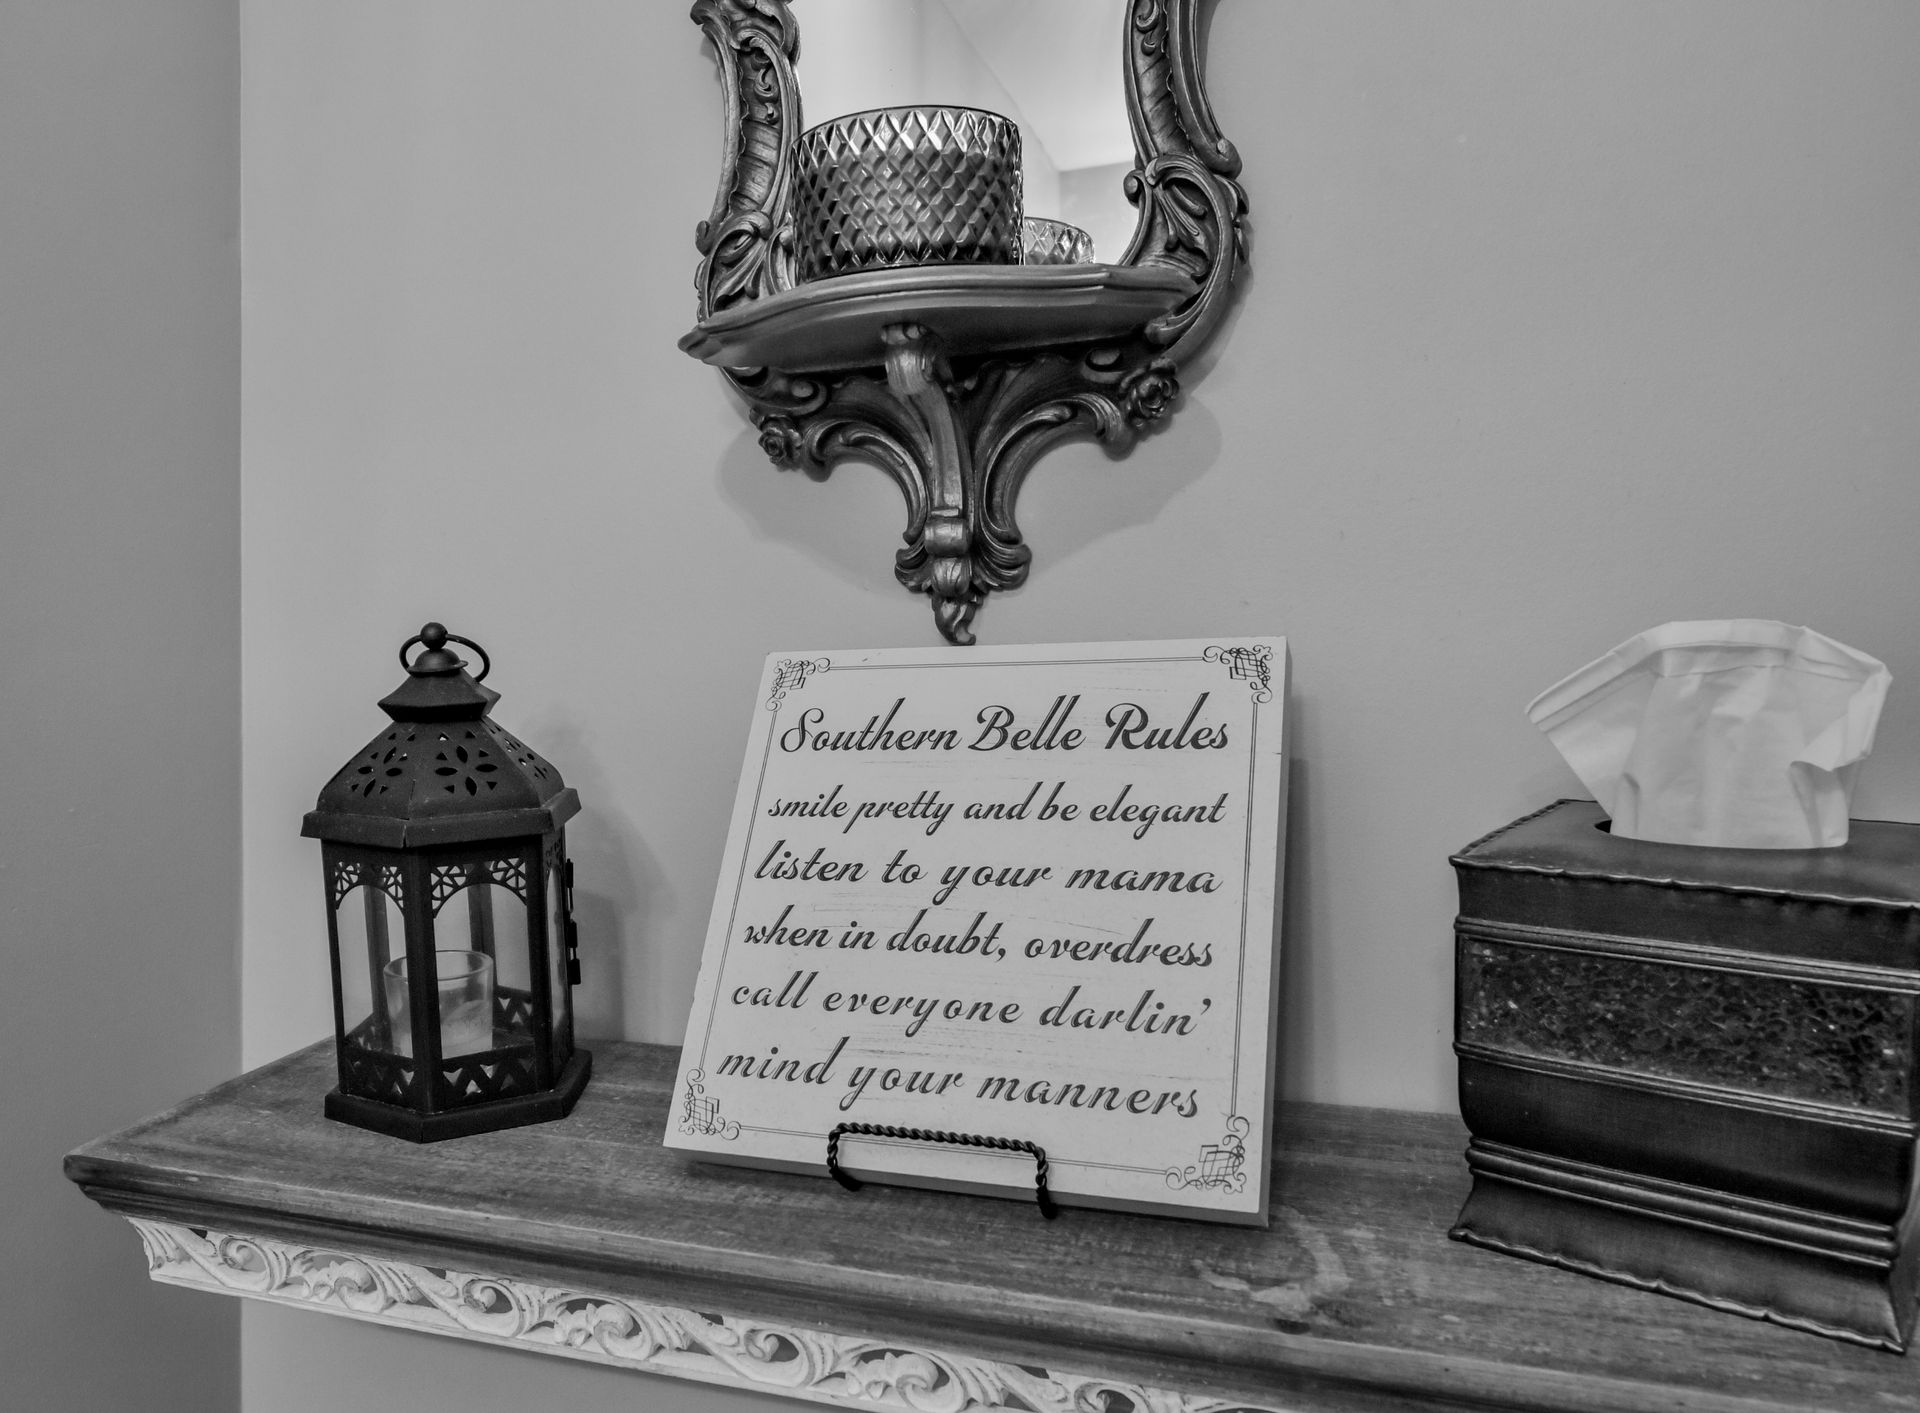 Southern Belle Rules
smile pretty and be elegant
listen to your mama
when in doubt, overdress
call everyone darlin'
mind your manners